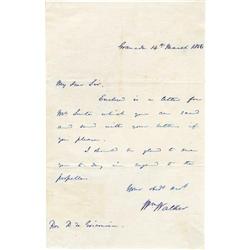 Granada 14th March 1856
My dear Sir.
Enclosed is a letter for
Mr which you can read
and send with your letters if
you please.
I should be glad to see
you to day in regard to the
propeller.
Your obdt svt
Wm Walker
Hon D. de Goicouria